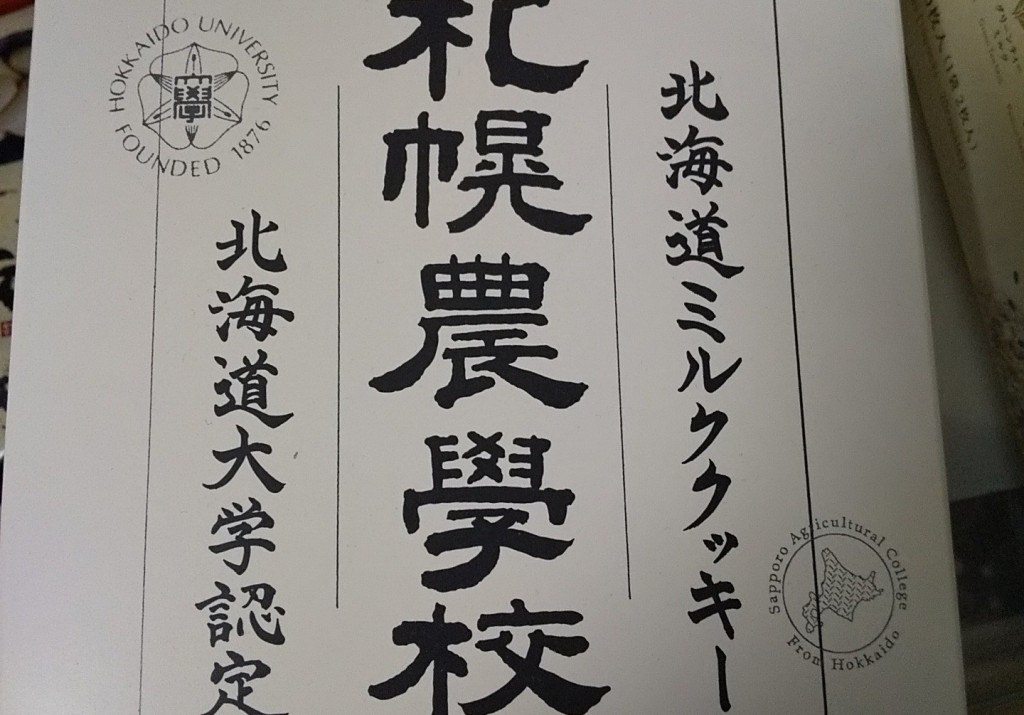 北海道ミルククッキー
札幌農學校
北海道大学認定
HOKKAIDO UNIVERSITY
FOUNDED 1876
學
Sapporo Agricultural College
From Hokkaido